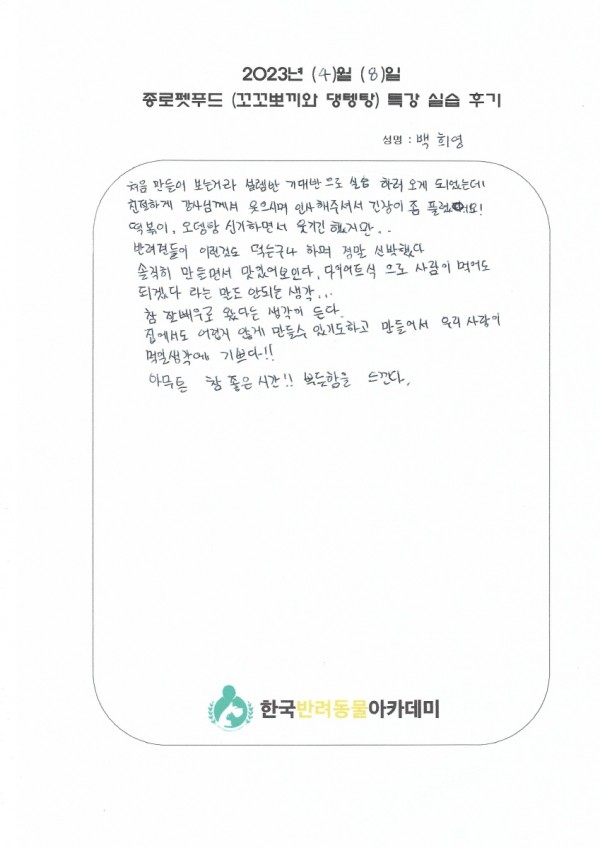 2023년 (4)월 (8)일
종로펫푸드 (꼬꼬뽀끼와 댕뎅탕) 특강 실습 후기
성명 : 백 희영
처음 만들어 보는거라 설렘반 기대반으로 실습 하러 오게 되었는데
친절하게 강사님께서 웃으시며 인사해주셔서 긴장이 좀 풀렸어요!
떡볶이, 오뎅탕 신기하면서 웃기긴 했지만..
반려견들이 이런것도 먹는구나 하며 정말 신박했다
솔직히 만들면서 맛있어보인다, 다이어트식 으로 사람이 먹어도
되겠다 라는 말도 안되는 생각...
참 잘배우로 왔다는 생각이 든다.
집에서도 어렵지 않게 만들수 있기도하고 만들어서 우리 사랑이
먹일생각에 기쁘다!!
아무튼 참 좋은시간!! 뿌듯함을 느낀다.
한국반려동물아카데미